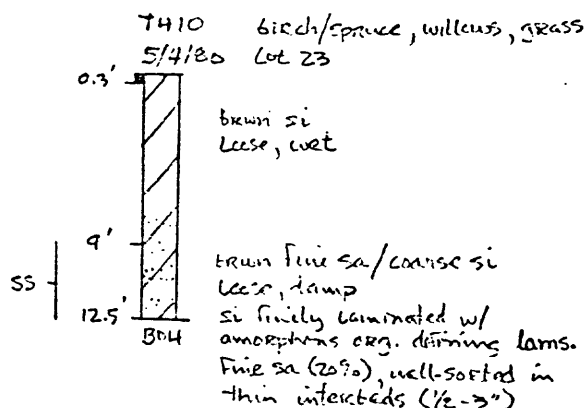 TH10 birch/spruce, willows, grass
5/4/80 Lot 23
0.3'
brown si
Loose, wet
9'
brown fine sa/coarse si
Loose, damp
SS
12.5'
si finely laminated w/
BOH
amorphous org. defining lams.
Fine sa (20%), well-sorted in
thin interbeds (1/2-3")